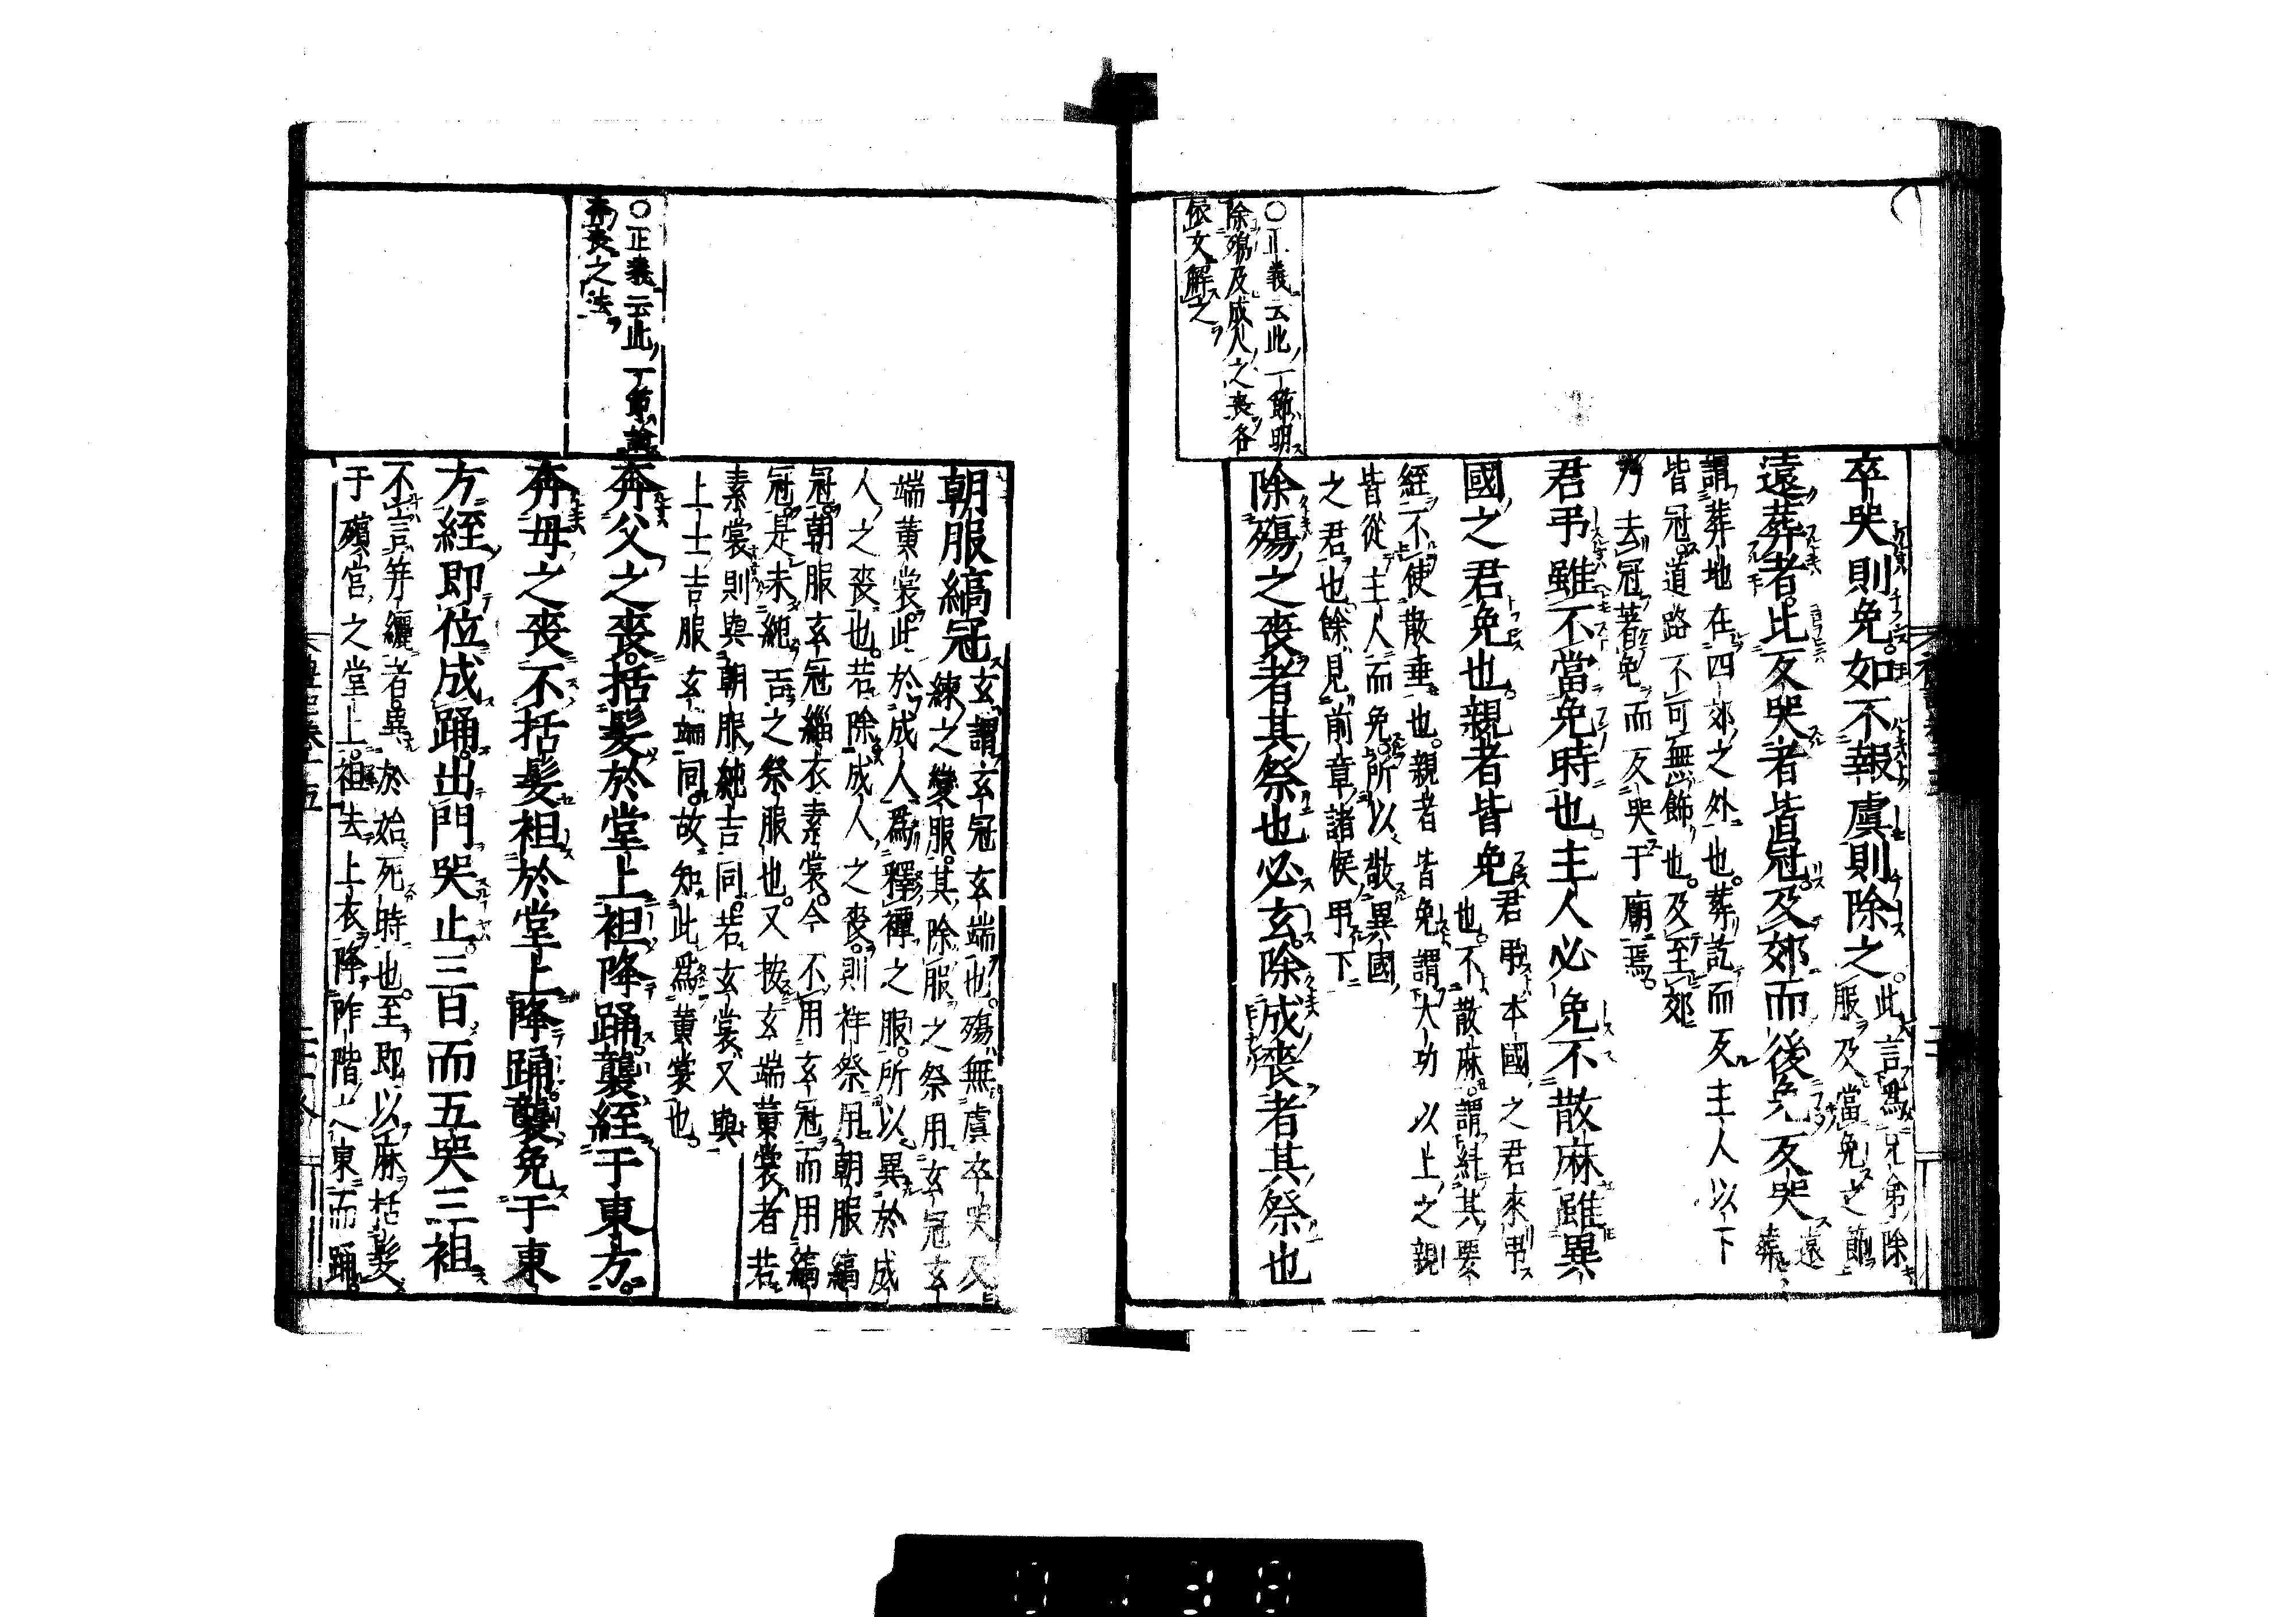 ○正義云此一節明
除殤及成人之喪各
依文解之
卒哭則免如不報虞則除之
此言爲兄弟除
服及當免之節
遠葬者比反哭者皆冠及郊而後免反哭
遠
葬
謂葬地在四郊之外也葬訖而反主人以下
皆冠道路不可無飾也及至郊
乃去冠著免而反哭于廟焉
君弔雖不當免時也主人必免不散麻雖異
國之君免也親者皆免
君弔本國之君來弔
也不散麻謂糾其要
絰不使散垂也親者皆免謂大功以上之親
皆從主人而免所以敬異國
之君也餘見前章諸侯弔下
除殤之喪者其祭也必玄除成喪者其祭也
○正義云此一節論
奔喪之法
朝服縞冠
玄謂玄冠玄端也殤無虞卒哭及
練之變服其除服之祭用玄冠玄
端黃裳此於成人爲釋禫之服所以異於成
人之喪也若除成人之喪則祥祭用朝服縞
冠朝服玄冠緇衣素裳今不用玄冠而用縞
冠是未純吉之祭服也又按玄端黃裳者若
素裳則與朝服純吉同若玄裳又與
上士吉服玄端同故知此爲黃裳也
奔父之喪括髮於堂上袒降踊襲絰于東方
奔母之喪不括髮袒於堂上降踊襲免于東
方絰即位成踊出門哭止三日而五哭三袒
不言笄纚者異於始死時也至即以麻括髮
于殯宮之堂上袒去上衣降阼階之東而踊